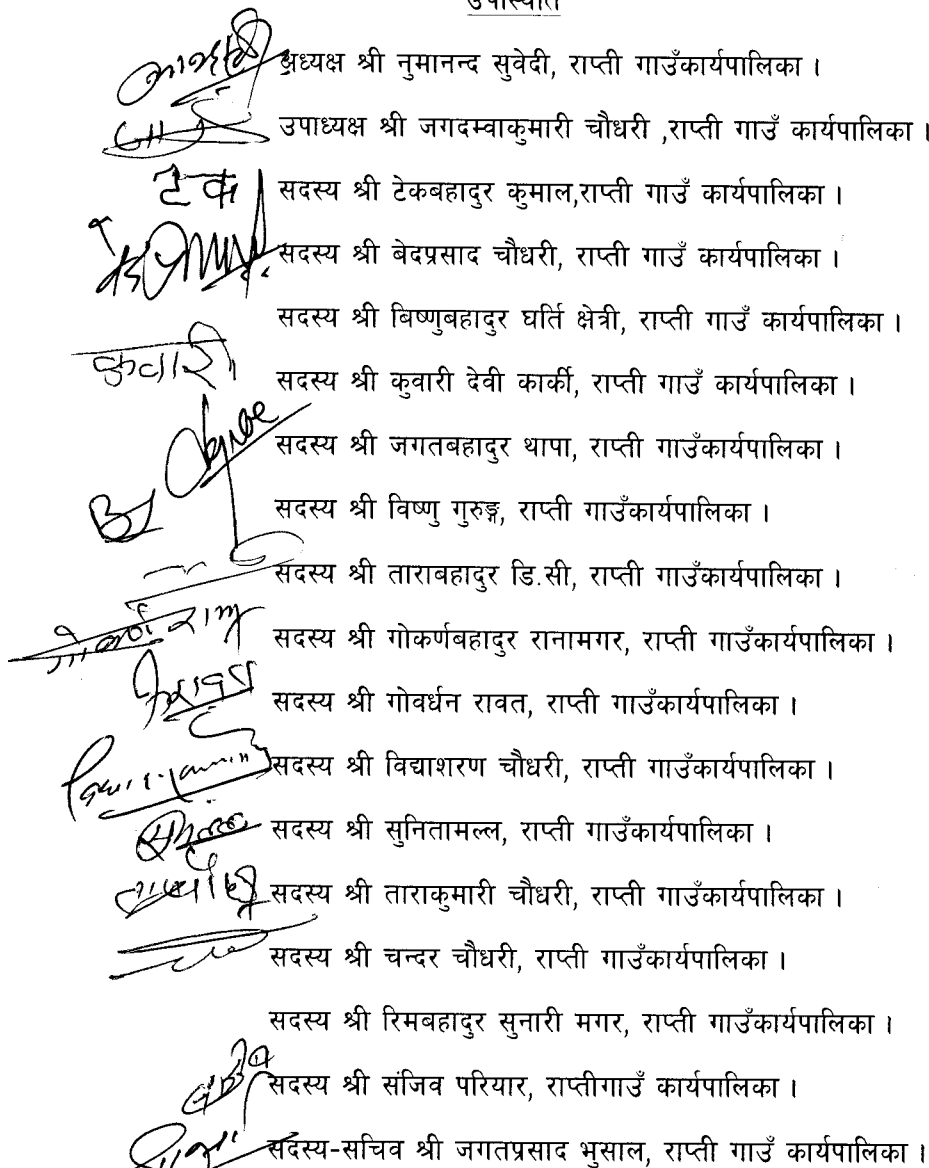 उपस्थिति
अध्यक्ष श्री नुमानन्द सुवेदी, राप्ती गाउँकार्यपालिका ।
उपाध्यक्ष श्री जगदम्वाकुमारी चौधरी ,राप्ती गाउँ कार्यपालिका ।
टेक सदस्य श्री टेकबहादुर कुमाल,राप्ती गाउँ कार्यपालिका ।
सदस्य श्री बेदप्रसाद चौधरी, राप्ती गाउँ कार्यपालिका ।
सदस्य श्री बिष्णुबहादुर घर्ति क्षेत्री, राप्ती गाउँ कार्यपालिका ।
कुवारी सदस्य श्री कुवारी देवी कार्की, राप्ती गाउँ कार्यपालिका ।
सदस्य श्री जगतबहादुर थापा, राप्ती गाउँ कार्यपालिका ।
सदस्य श्री विष्णु गुरुङ्ग, राप्ती गाउँकार्यपालिका ।
सदस्य श्री ताराबहादुर डि.सी, राप्ती गाउँकार्यपालिका ।
गोकर्ण सदस्य श्री गोकर्णबहादुर रानामगर, राप्ती गाउँकार्यपालिका ।
सदस्य श्री गोवर्धन रावत, राप्ती गाउँकार्यपालिका ।
सदस्य श्री विद्याशरण चौधरी, राप्ती गाउँकार्यपालिका ।
सदस्य श्री सुनितामल्ल, राप्ती गाउँकार्यपालिका ।
सदस्य श्री ताराकुमारी चौधरी, राप्ती गाउँकार्यपालिका ।
सदस्य श्री चन्दर चौधरी, राप्ती गाउँकार्यपालिका ।
सदस्य श्री रिमबहादुर सुनारी मगर, राप्ती गाउँकार्यपालिका ।
सदस्य श्री संजिव परियार, राप्तीगाउँ कार्यपालिका ।
सदस्य-सचिव श्री जगतप्रसाद भुसाल, राप्ती गाउँ कार्यपालिका ।